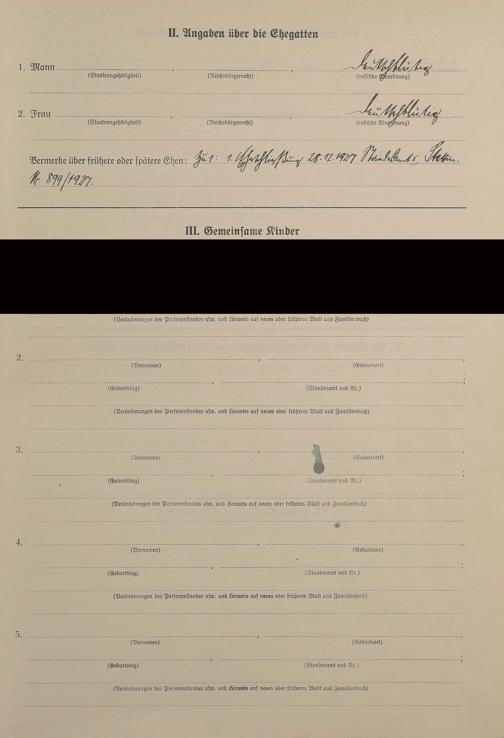 II. Angaben über die Ehegatten
1. Mann deutschblütig
(Staatsangehörigkeit) (Reichsbürgerrecht) (rassische Einordnung)
2. Frau deutschblütig
(Staatsangehörigkeit) (Reichsbürgerrecht) (rassische Einordnung)
Vermerke über frühere oder spätere Ehen: Zu 1: 1. Eheschließung 28.12.1927 Standesamt Stettin.
Nr. 899/1927.
III. Gemeinsame Kinder
(Veränderungen des Personenstandes usw. und Hinweis auf neues oder früheres Blatt und Familienbuch)
2.
(Vornamen) (Geburtsort)
(Geburtstag) (Standesamt und Nr.)
(Veränderungen des Personenstandes usw. und Hinweis auf neues oder früheres Blatt und Familienbuch)
3.
(Vornamen) (Geburtsort)
(Geburtstag) (Standesamt und Nr.)
(Veränderungen des Personenstandes usw. und Hinweis auf neues oder früheres Blatt und Familienbuch)
4.
(Vornamen) (Geburtsort)
(Geburtstag) (Standesamt und Nr.)
(Veränderungen des Personenstandes usw. und Hinweis auf neues oder früheres Blatt und Familienbuch)
5.
(Vornamen) (Geburtsort)
(Geburtstag) (Standesamt und Nr.)
(Veränderungen des Personenstandes usw. und Hinweis auf neues oder früheres Blatt und Familienbuch)